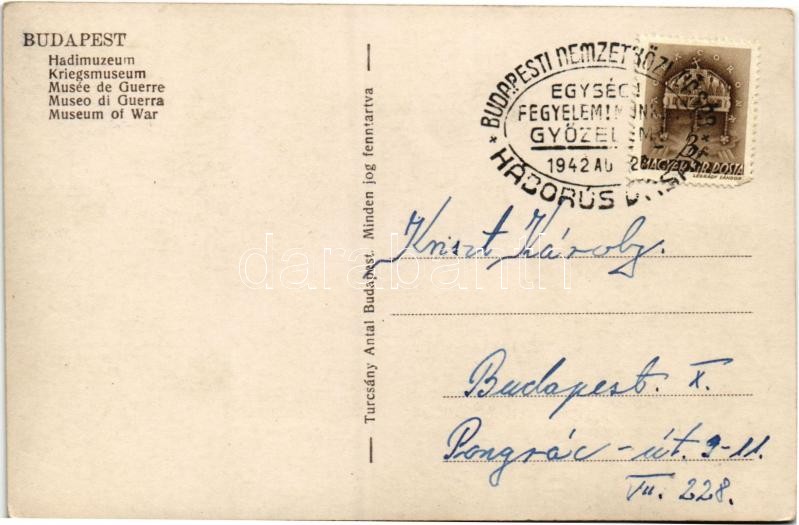 BUDAPEST
Hadimuzeum
Kriegsmuseum
Musée de Guerre
Museo di Guerra
Museum of War
Turcsány Antal Budapest. Minden jog fenntartva
* BUDAPESTI NEMZETKÖZI
EGYSÉG
FEGYELEM! MUNKA
GYŐZELEM
1942 AU 28
HÁBORÚS
MAGYAR KIR. POSTA
LÉGRÁDY SÁNDOR
Kniszt Károly.
Budapest. X.
Pongrác-út. 9-11.
VII. 228.
darabanth